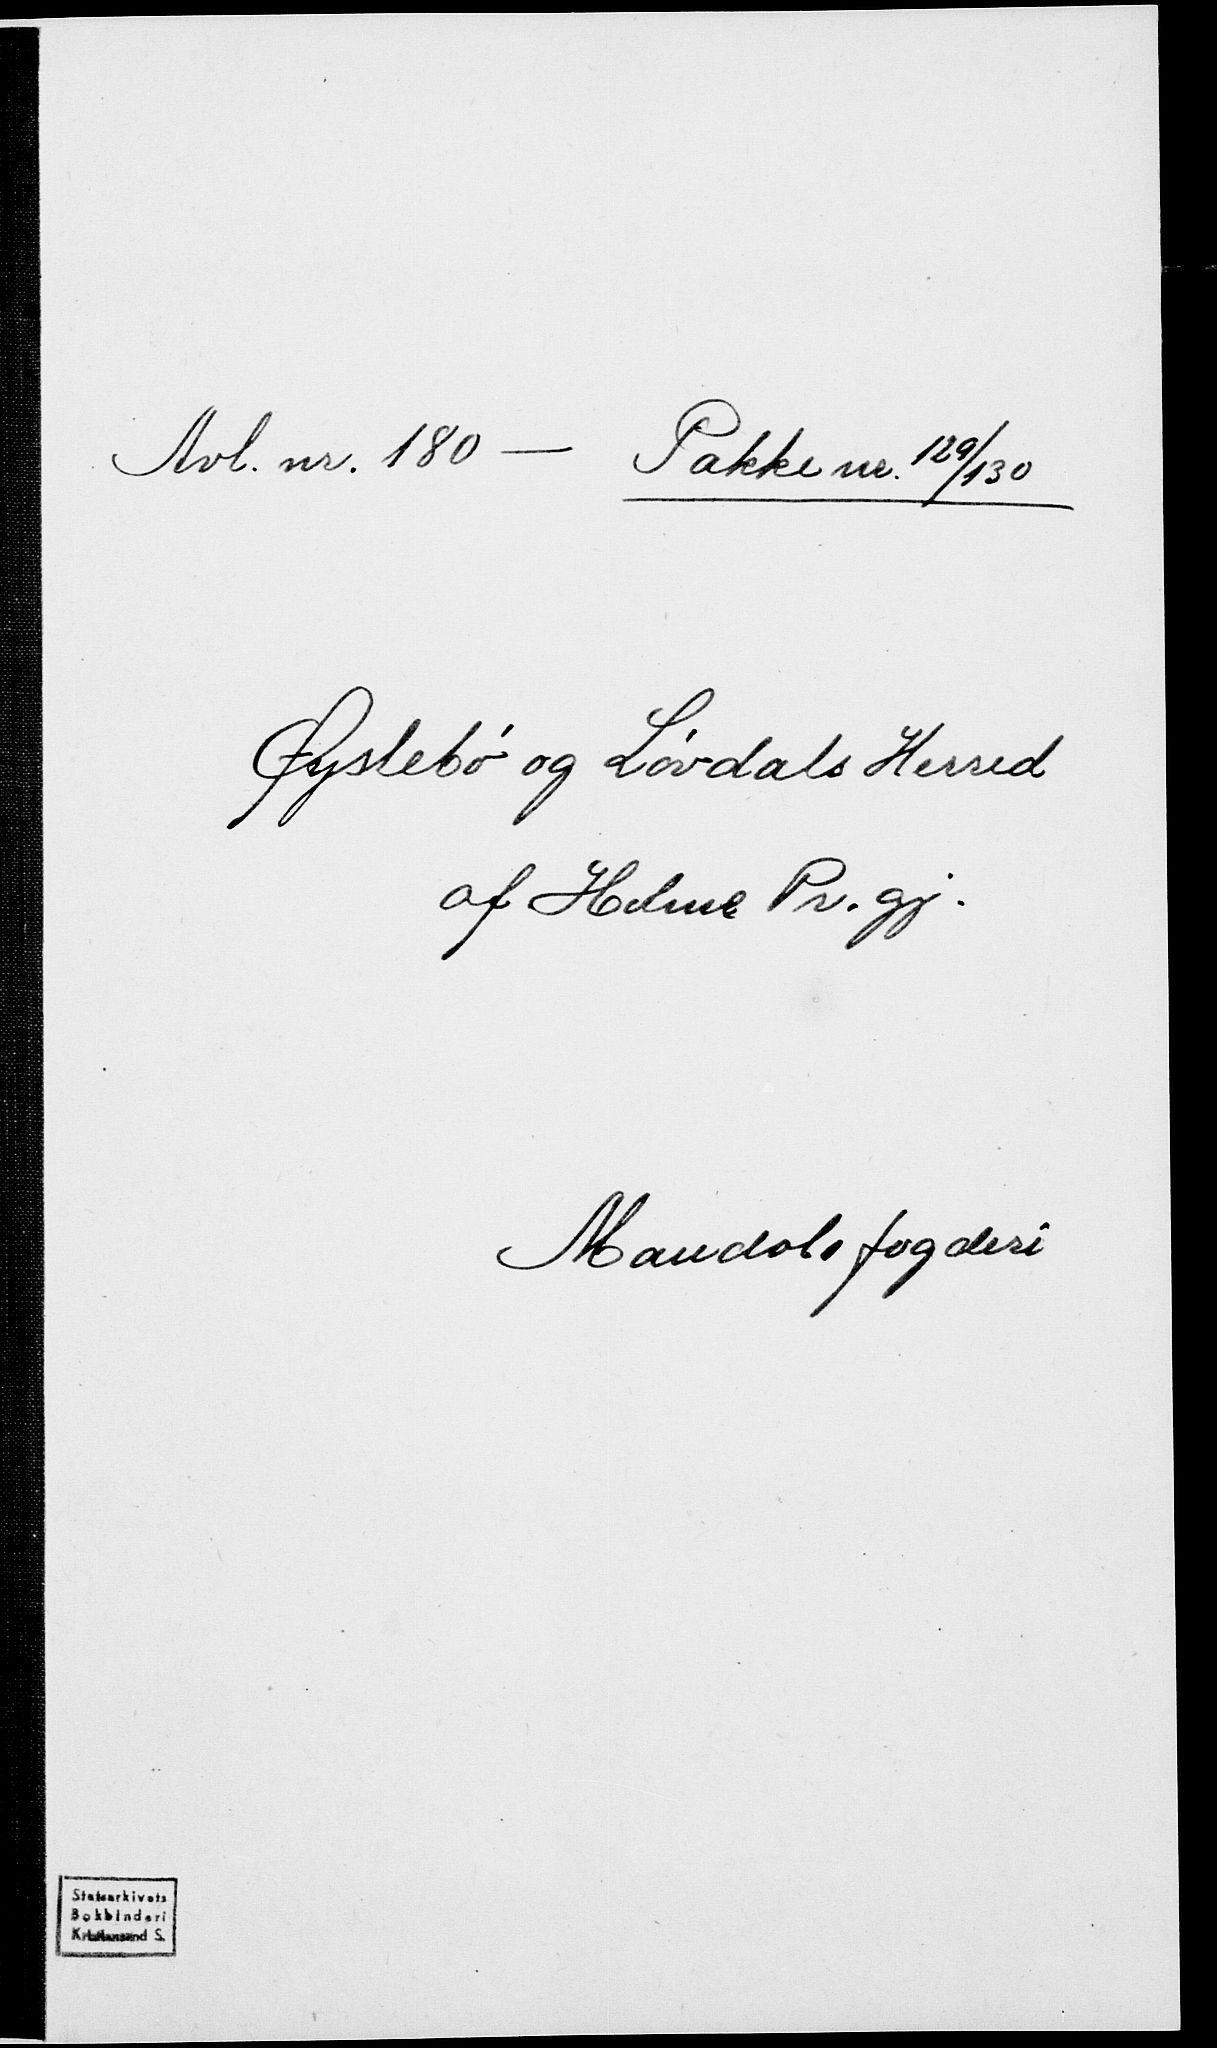 Avl. nr. 180 — Pakke nr. 129/130
Øyslebö og Lövdals Herred
af Holme Pr. gj.
Mandals fogderi
Statsarkivets
Bokbinderi
Kristiansand S.